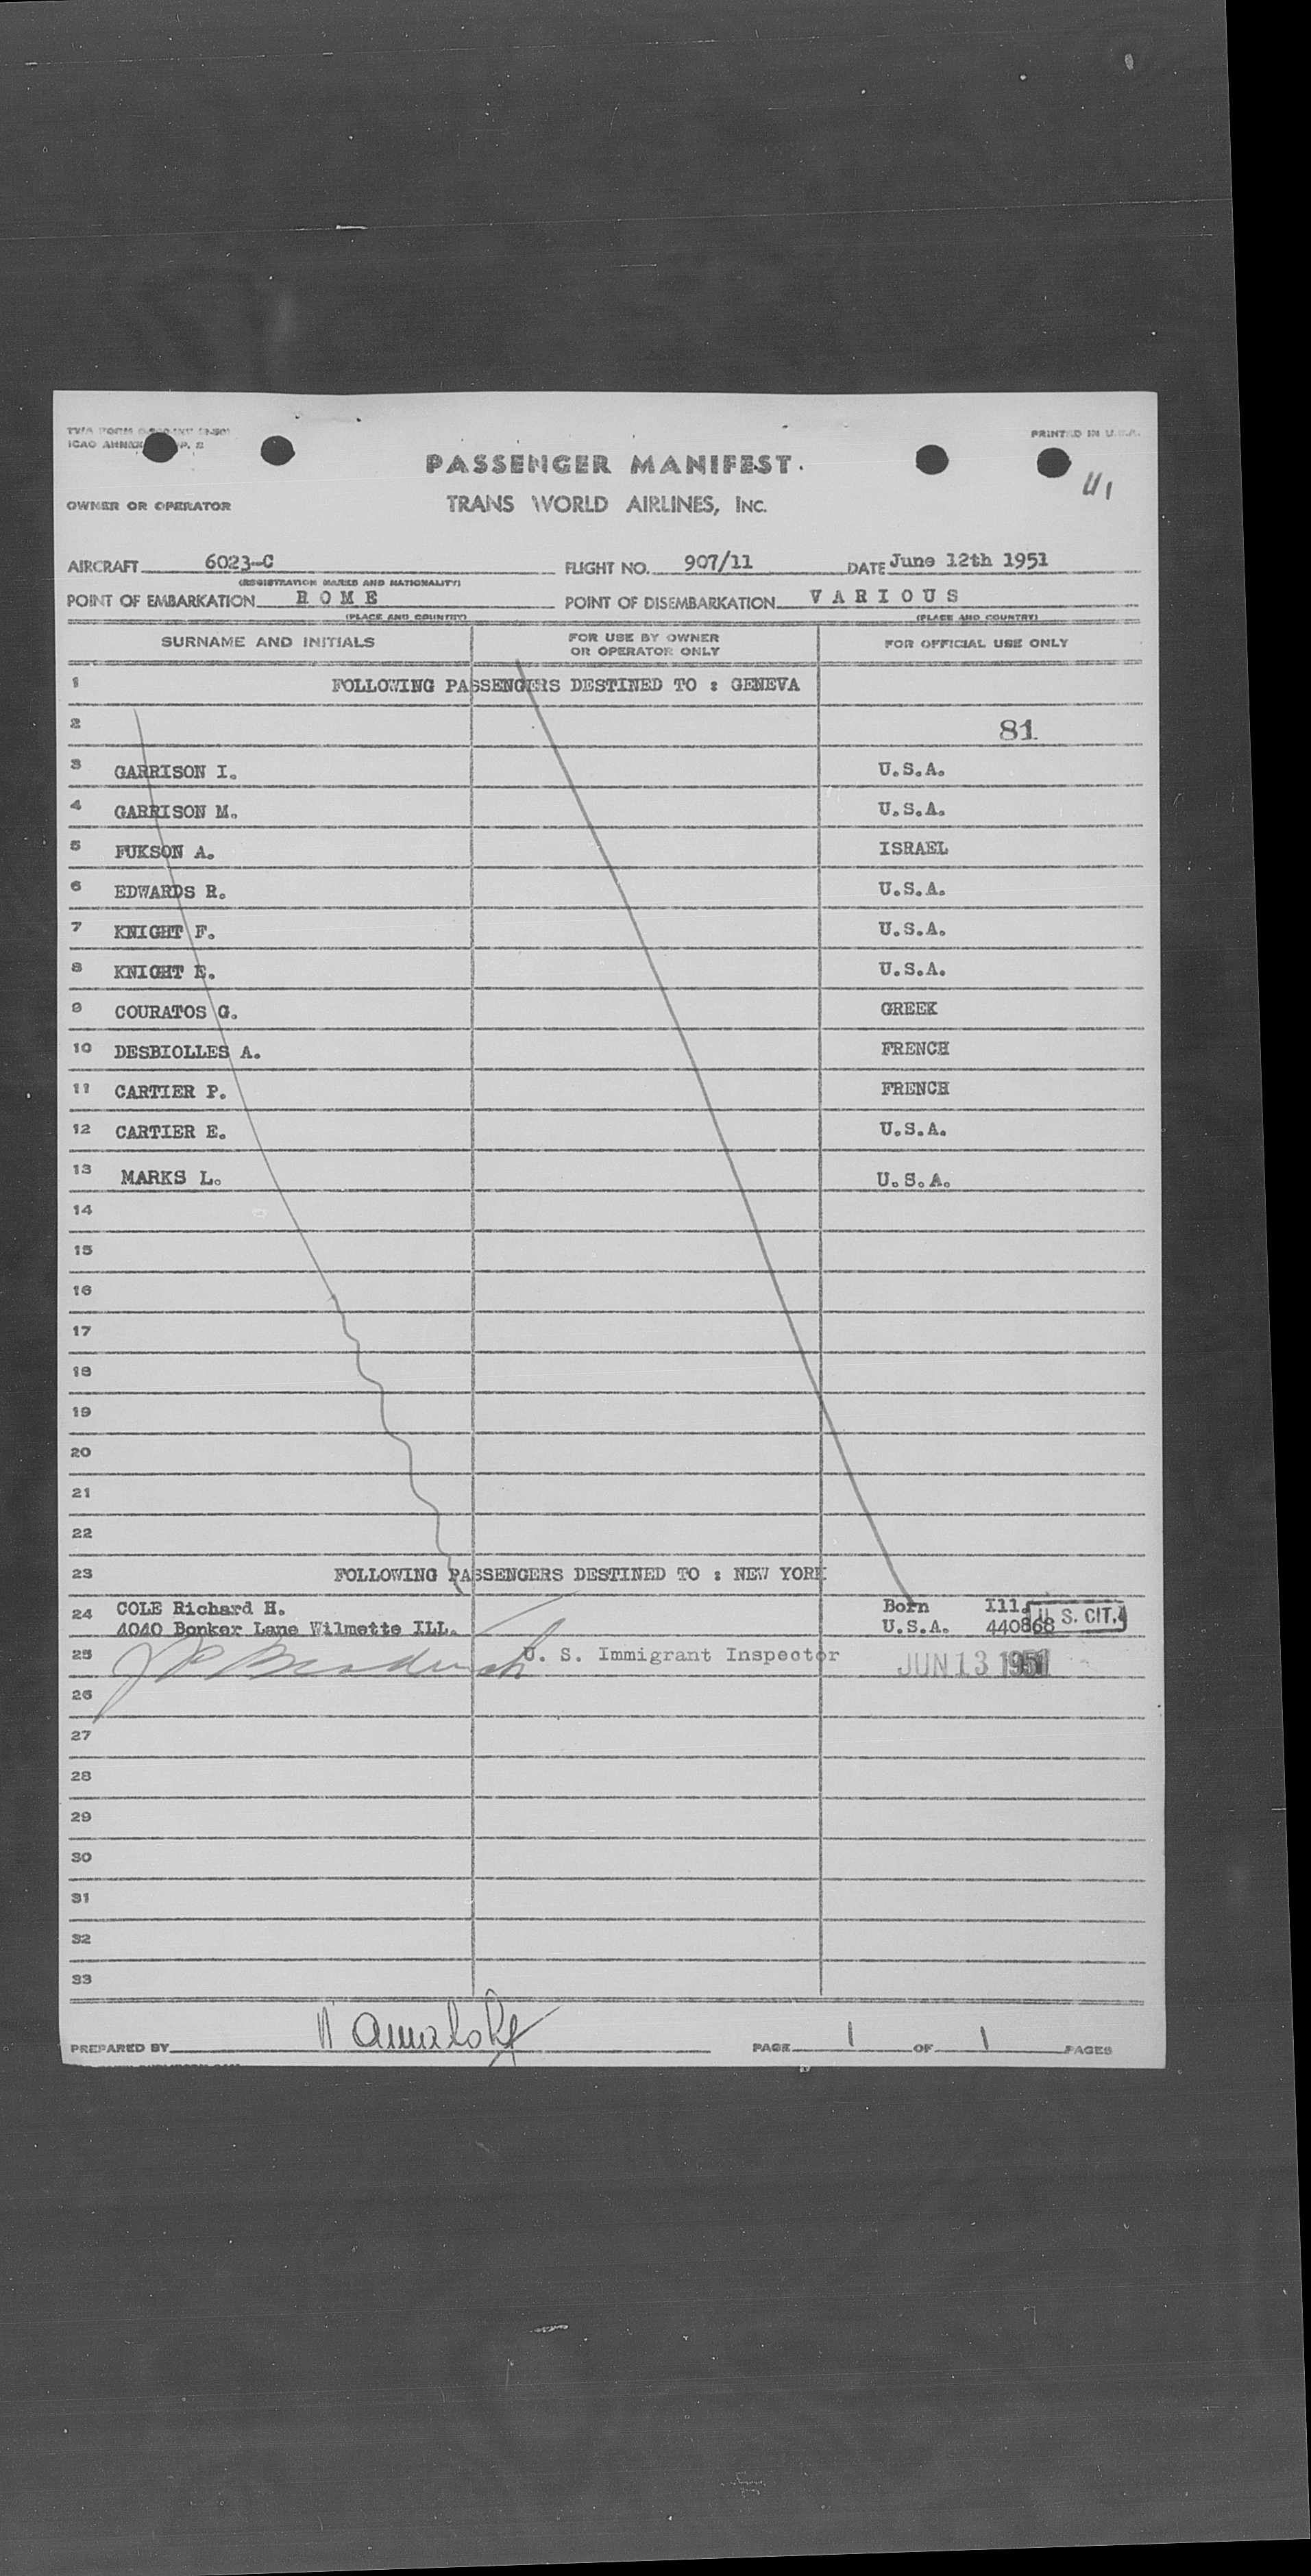 ICAO ANNEX P. 2
PRINTED IN U.S.A.
PASSENGER MANIFEST.
OWNER OR OPERATOR TRANS WORLD AIRLINES, INC.
AIRCRAFT 6023-C FLIGHT NO. 907/11 DATE June 12th 1951
(REGISTRATION MARKS AND NATIONALITY)
POINT OF EMBARKATION R O M E POINT OF DISEMBARKATION V A R I O U S
(PLACE AND COUNTRY) (PLACE AND COUNTRY)
SURNAME AND INITIALS FOR USE BY OWNER OR OPERATOR ONLY FOR OFFICIAL USE ONLY
1 FOLLOWING PASSENGERS DESTINED TO : GENEVA
2 81
3 GARRISON I. U.S.A.
4 GARRISON M. U.S.A.
5 FUKSON A. ISRAEL
6 EDWARDS R. U.S.A.
7 KNIGHT F. U.S.A.
8 KNIGHT E. U.S.A.
9 COURATOS G. GREEK
10 DESBIOLLES A. FRENCH
11 CARTIER P. FRENCH
12 CARTIER E. U.S.A.
13 MARKS L. U.S.A.
14
15
16
17
18
19
20
21
22
23 FOLLOWING PASSENGERS DESTINED TO : NEW YORK
24 COLE Richard H. Born Ill.
4040 Bonker Lane Wilmette ILL. U.S.A. 440868 U. S. CIT.
25 U. S. Immigrant Inspector JUN 13 1951
26
27
28
29
30
31
32
33
PREPARED BY PAGE 1 OF 1 PAGES